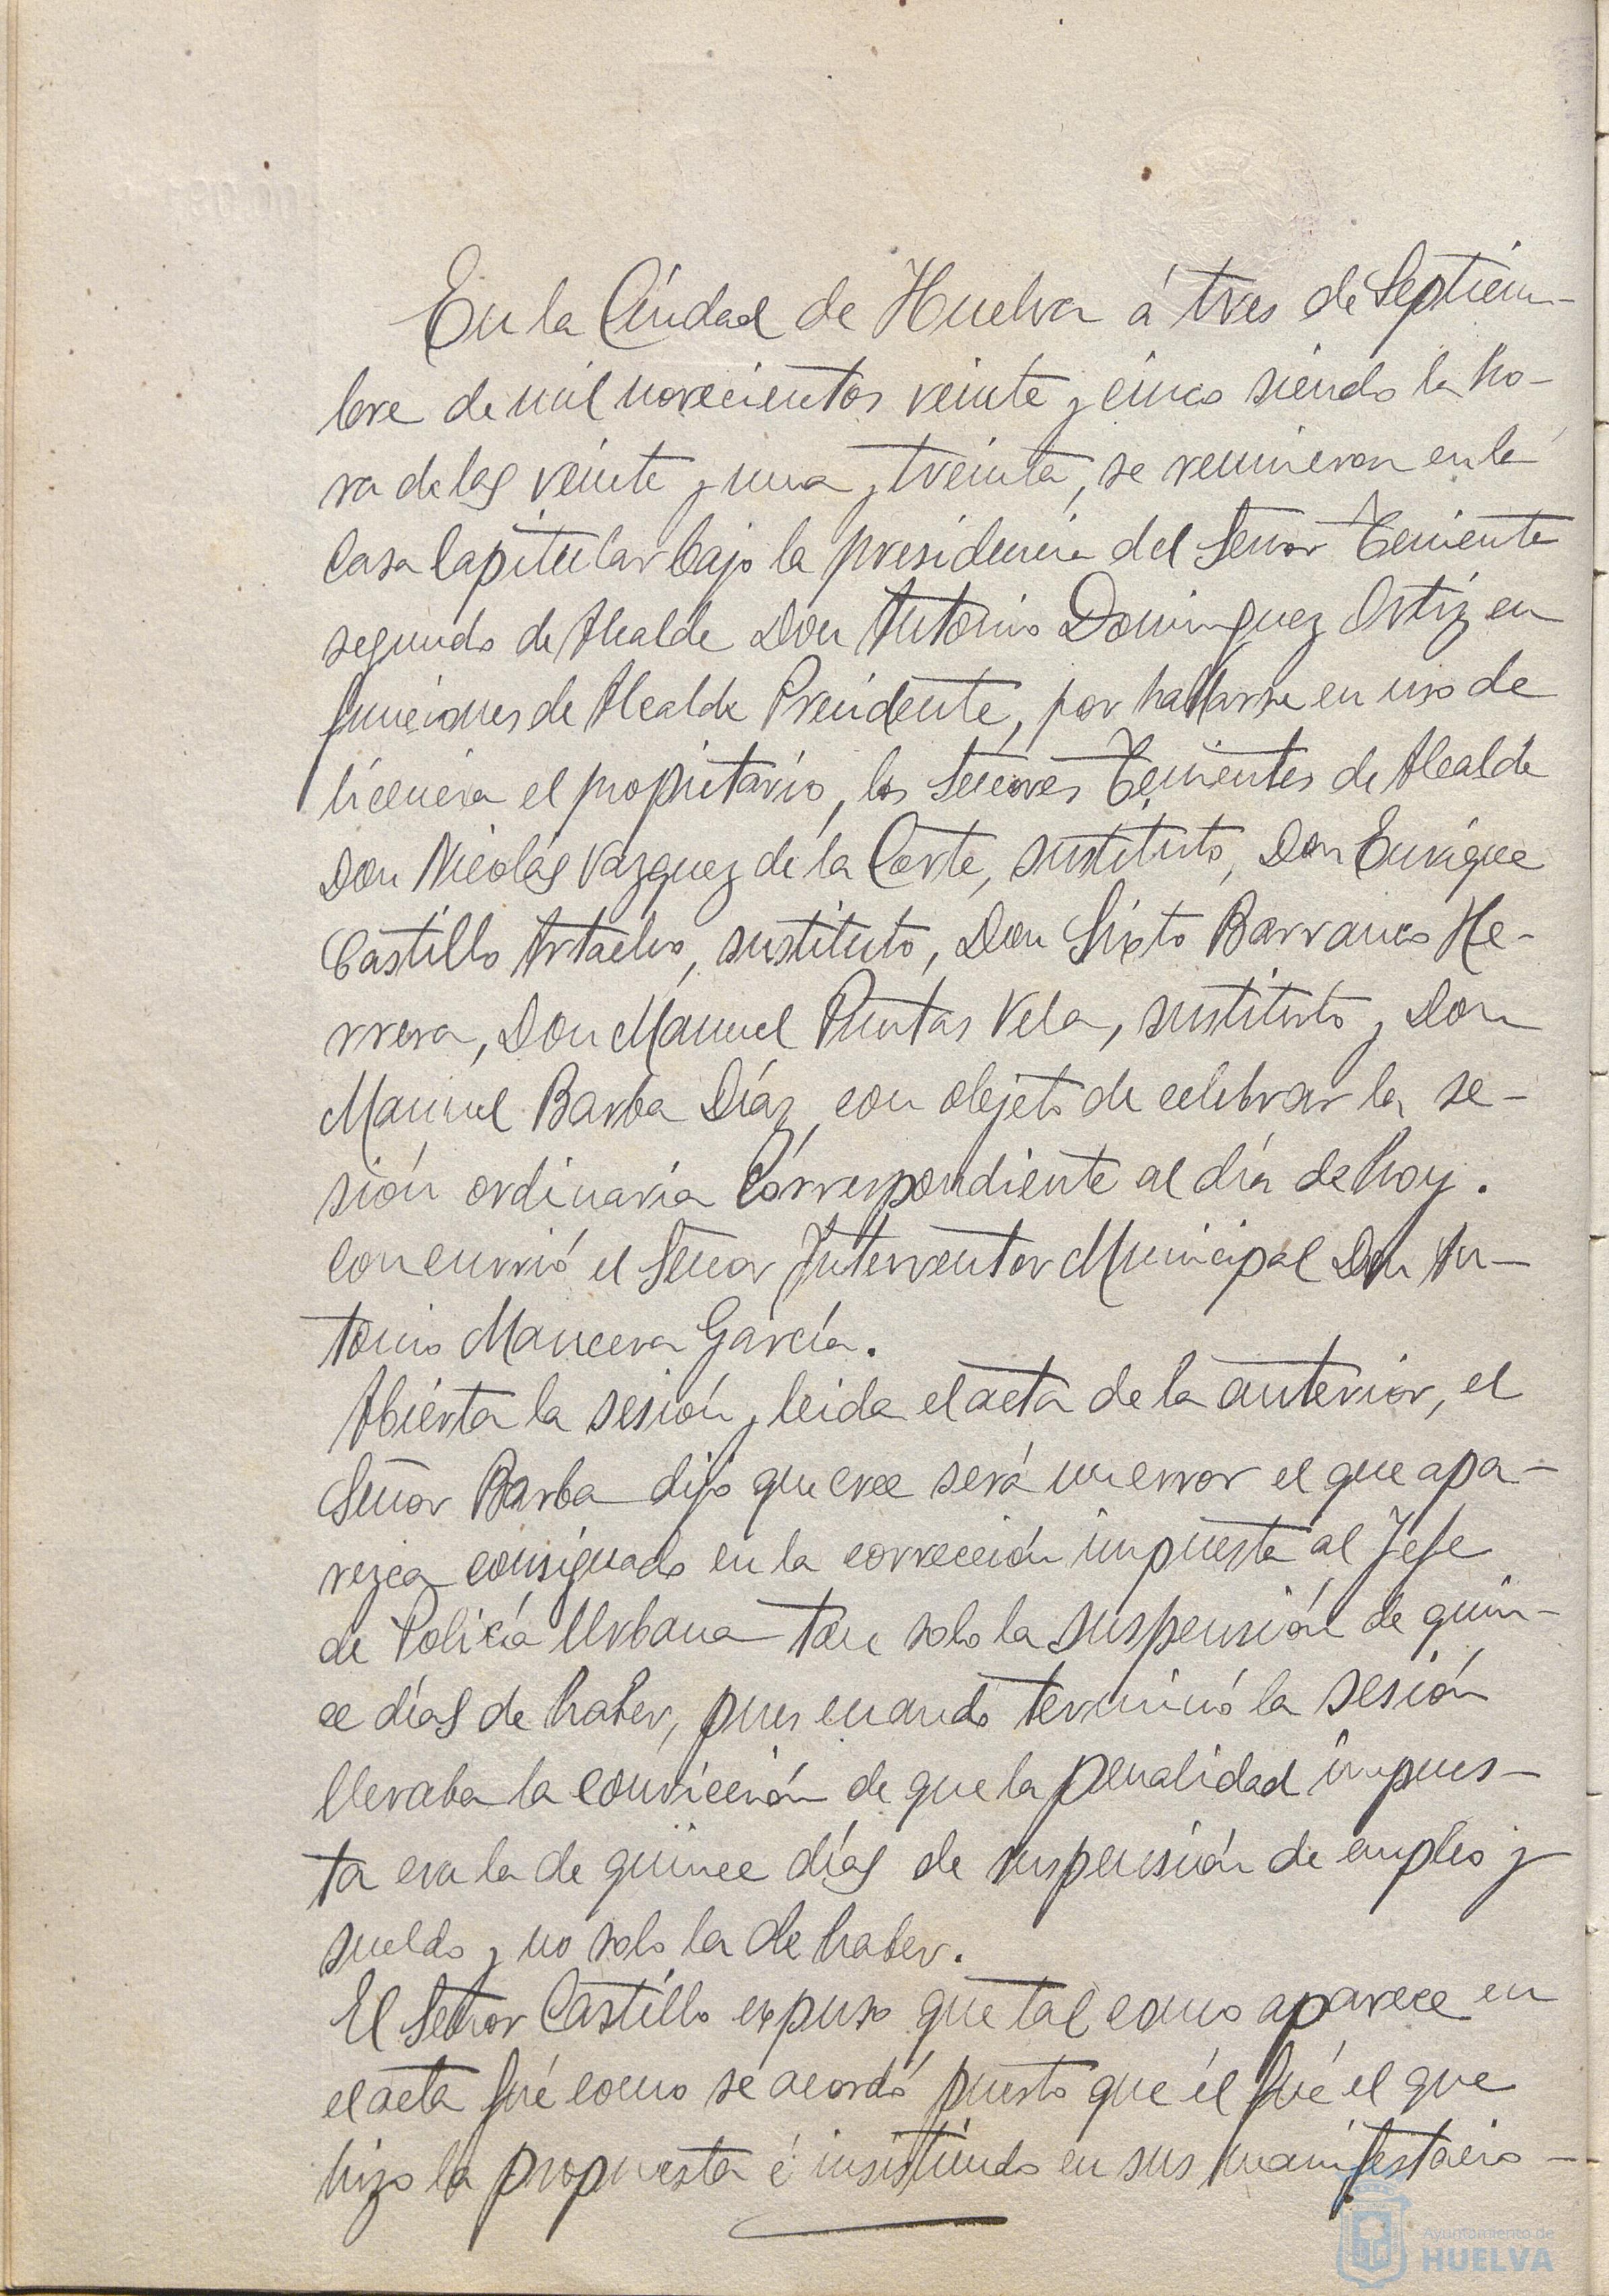 En la Ciudad de Huelva á tres de Septiem-
bre de mil novecientos veinte y cinco siendo la ho-
ra de las veinte y una y treinta, se reunieron en la
Casa Capitular bajo la presidencia del Señor Teniente
segundo de Alcalde Don Antonio Dominguez Ortiz en
funciones de Alcalde Presidente, por hallarse en uso de
licencia el propietario, los Señores Tenientes de Alcalde
Don Nicolás Vazquez de la Corte, sustituto, Don Enrique
Castillo Artacho, sustituto, Don Sixto Barranco He-
rrera, Don Manuel Puntas Vela, sustituto y Don
Manuel Barba Díaz, con objeto de celebrar la se-
sión ordinaria correspondiente al día de hoy.
Concurrió el Señor Interventor Municipal Don An-
tonio Mancera García.
Abierta la sesión y leida el acta de la anterior, el
Señor Barba dijo que cree será un error el que apa-
rezca consignado en la corrección impuesta al Jefe
de Policía Urbana tan solo la suspensión de quin-
ce días de haber, pues cuando terminó la sesión
llevaba la convicción de que la penalidad impues-
ta era la de quince días de suspensión de empleo y
sueldo y no solo la de haber.
El Señor Castillo expuso que tal como aparece en
el acta fué como se acordó puesto que él fué el que
hizo la propuesta é insistiendo en sus manifestacio-
Ayuntamiento de
HUELVA